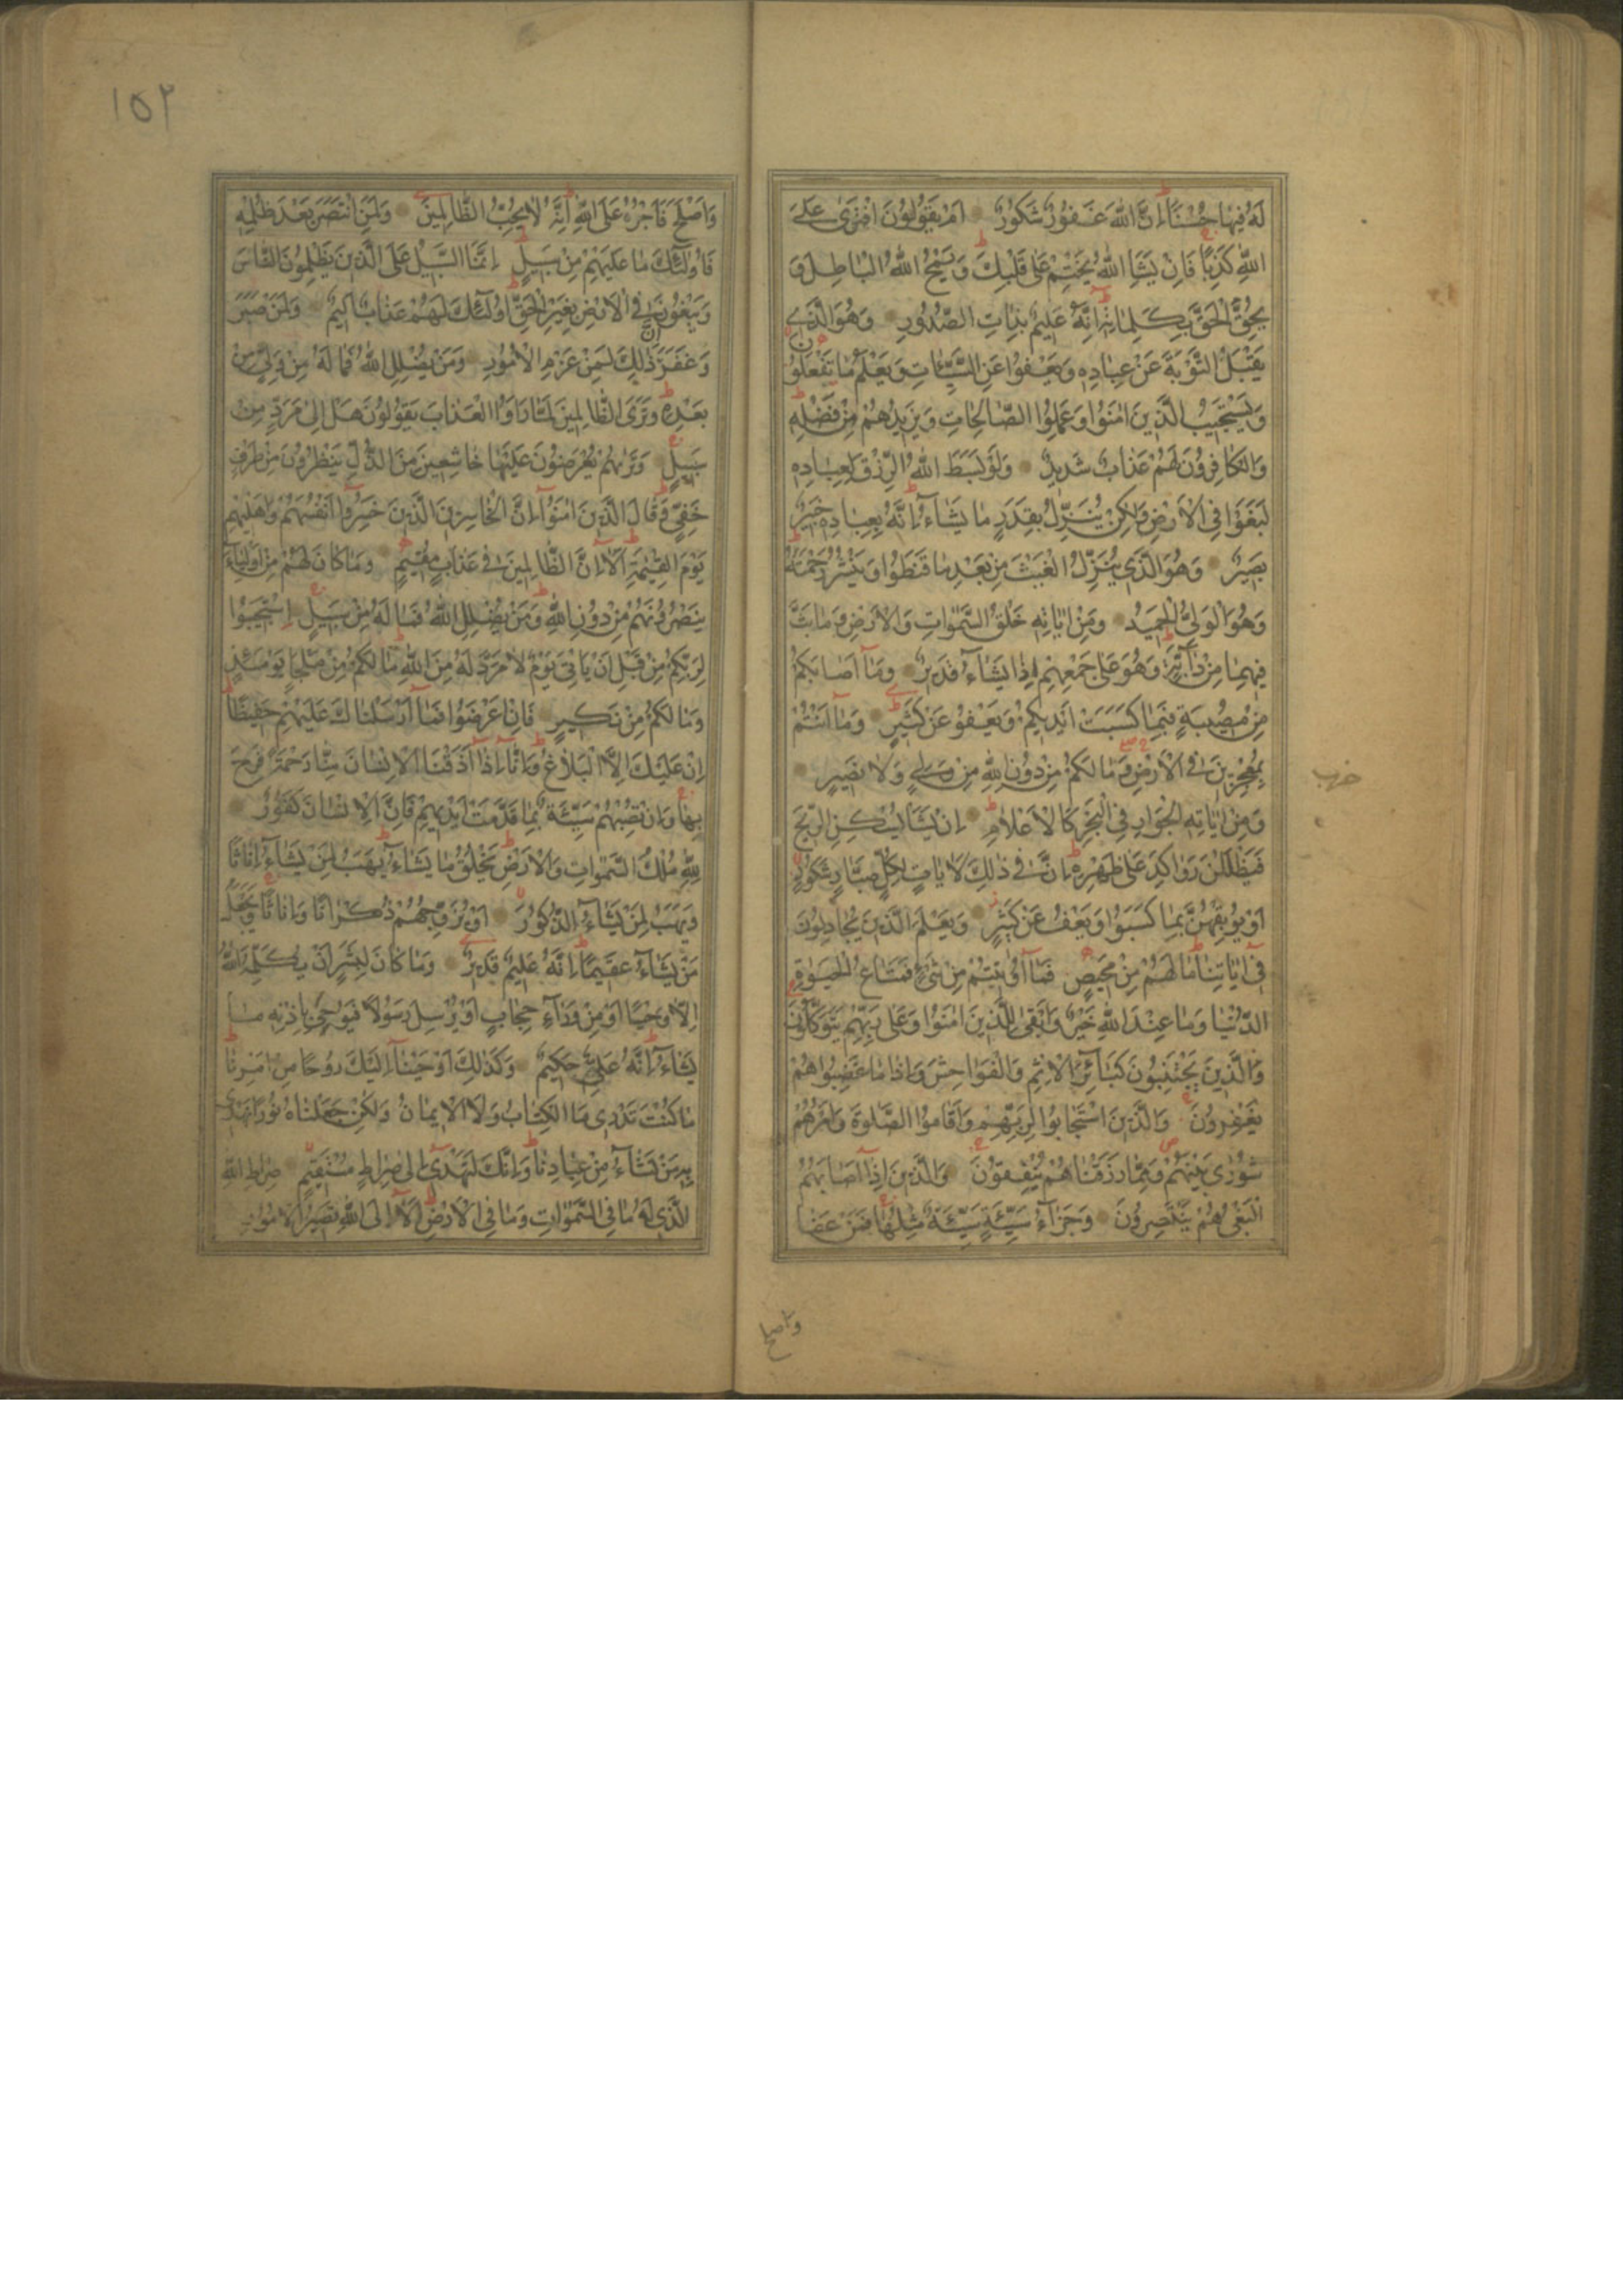 لَهُ فِيهَا حُسْنًا إِنَّ اللّٰهَ غَفُورٌ شَكُورٌ أَمْ يَقُولُونَ افْتَرٰى عَلَى
اللّٰهِ كَذِبًا فَإِنْ يَشَإِ اللّٰهُ يَخْتِمْ عَلٰى قَلْبِكَ وَيَمْحُ اللّٰهُ الْبَاطِلَ وَ
يُحِقُّ الْحَقَّ بِكَلِمَاتِهِ إِنَّهُ عَلِيمٌ بِذَاتِ الصُّدُورِ وَهُوَ الَّذِي
يَقْبَلُ التَّوْبَةَ عَنْ عِبَادِهِ وَيَعْفُوا عَنِ السَّيِّئَاتِ وَيَعْلَمُ مَا تَفْعَلُونَ
وَيَسْتَجِيبُ الَّذِينَ اٰمَنُوا وَعَمِلُوا الصَّالِحَاتِ وَيَزِيدُهُمْ مِنْ فَضْلِهِ
وَالْكَافِرُونَ لَهُمْ عَذَابٌ شَدِيدٌ وَلَوْ بَسَطَ اللّٰهُ الرِّزْقَ لِعِبَادِهِ
لَبَغَوْا فِي الْأَرْضِ وَلٰكِنْ يُنَزِّلُ بِقَدَرٍ مَا يَشَاءُ إِنَّهُ بِعِبَادِهِ خَبِيرٌ
بَصِيرٌ وَهُوَ الَّذِي يُنَزِّلُ الْغَيْثَ مِنْ بَعْدِ مَا قَنَطُوا وَيَنْشُرُ رَحْمَتَهُ
وَهُوَ الْوَلِيُّ الْحَمِيدُ وَمِنْ اٰيَاتِهِ خَلْقُ السَّمٰوَاتِ وَالْأَرْضِ وَمَا بَثَّ
فِيهِمَا مِنْ دَابَّةٍ وَهُوَ عَلٰى جَمْعِهِمْ إِذَا يَشَاءُ قَدِيرٌ وَمَا أَصَابَكُمْ
مِنْ مُصِيبَةٍ فَبِمَا كَسَبَتْ أَيْدِيكُمْ وَيَعْفُو عَنْ كَثِيرٍ وَمَا أَنْتُمْ
بِمُعْجِزِينَ فِي الْأَرْضِ وَمَا لَكُمْ مِنْ دُونِ اللّٰهِ مِنْ وَلِيٍّ وَلَا نَصِيرٍ
حزب
وَمِنْ اٰيَاتِهِ الْجَوَارِ فِي الْبَحْرِ كَالْأَعْلَامِ إِنْ يَشَأْ يُسْكِنِ الرِّيحَ
فَيَظْلَلْنَ رَوَاكِدَ عَلٰى ظَهْرِهِ إِنَّ فِي ذٰلِكَ لَاٰيَاتٍ لِكُلِّ صَبَّارٍ شَكُورٍ
أَوْ يُوبِقْهُنَّ بِمَا كَسَبُوا وَيَعْفُ عَنْ كَثِيرٍ وَيَعْلَمَ الَّذِينَ يُجَادِلُونَ
فِي اٰيَاتِنَا مَا لَهُمْ مِنْ مَحِيصٍ فَمَا أُوتِيتُمْ مِنْ شَيْءٍ فَمَتَاعُ الْحَيٰوةِ
الدُّنْيَا وَمَا عِنْدَ اللّٰهِ خَيْرٌ وَأَبْقٰى لِلَّذِينَ اٰمَنُوا وَعَلٰى رَبِّهِمْ يَتَوَكَّلُونَ
وَالَّذِينَ يَجْتَنِبُونَ كَبَائِرَ الْإِثْمِ وَالْفَوَاحِشَ وَإِذَا مَا غَضِبُوا هُمْ
يَغْفِرُونَ وَالَّذِينَ اسْتَجَابُوا لِرَبِّهِمْ وَأَقَامُوا الصَّلٰوةَ وَأَمْرُهُمْ
شُورٰى بَيْنَهُمْ وَمِمَّا رَزَقْنَاهُمْ يُنْفِقُونَ وَالَّذِينَ إِذَا أَصَابَهُمُ
الْبَغْيُ هُمْ يَنْتَصِرُونَ وَجَزَاءُ سَيِّئَةٍ سَيِّئَةٌ مِثْلُهَا فَمَنْ عَفَا
واصلح
١٥٢
وَأَصْلَحَ فَأَجْرُهُ عَلَى اللّٰهِ إِنَّهُ لَا يُحِبُّ الظَّالِمِينَ وَلَمَنِ انْتَصَرَ بَعْدَ ظُلْمِهِ
فَأُولٰئِكَ مَا عَلَيْهِمْ مِنْ سَبِيلٍ إِنَّمَا السَّبِيلُ عَلَى الَّذِينَ يَظْلِمُونَ النَّاسَ
وَيَبْغُونَ فِي الْأَرْضِ بِغَيْرِ الْحَقِّ أُولٰئِكَ لَهُمْ عَذَابٌ أَلِيمٌ وَلَمَنْ صَبَرَ
وَغَفَرَ إِنَّ ذٰلِكَ لَمِنْ عَزْمِ الْأُمُورِ وَمَنْ يُضْلِلِ اللّٰهُ فَمَا لَهُ مِنْ وَلِيٍّ مِنْ
بَعْدِهِ وَتَرَى الظَّالِمِينَ لَمَّا رَأَوُا الْعَذَابَ يَقُولُونَ هَلْ إِلٰى مَرَدٍّ مِنْ
سَبِيلٍ وَتَرٰيهُمْ يُعْرَضُونَ عَلَيْهَا خَاشِعِينَ مِنَ الذُّلِّ يَنْظُرُونَ مِنْ طَرْفٍ
خَفِيٍّ وَقَالَ الَّذِينَ اٰمَنُوا إِنَّ الْخَاسِرِينَ الَّذِينَ خَسِرُوا أَنْفُسَهُمْ وَأَهْلِيهِمْ
يَوْمَ الْقِيٰمَةِ أَلَا إِنَّ الظَّالِمِينَ فِي عَذَابٍ مُقِيمٍ وَمَا كَانَ لَهُمْ مِنْ أَوْلِيَاءَ
يَنْصُرُونَهُمْ مِنْ دُونِ اللّٰهِ وَمَنْ يُضْلِلِ اللّٰهُ فَمَا لَهُ مِنْ سَبِيلٍ اِسْتَجِيبُوا
لِرَبِّكُمْ مِنْ قَبْلِ أَنْ يَأْتِيَ يَوْمٌ لَا مَرَدَّ لَهُ مِنَ اللّٰهِ مَا لَكُمْ مِنْ مَلْجَإٍ يَوْمَئِذٍ
وَمَا لَكُمْ مِنْ نَكِيرٍ فَإِنْ أَعْرَضُوا فَمَا أَرْسَلْنَاكَ عَلَيْهِمْ حَفِيظًا
إِنْ عَلَيْكَ إِلَّا الْبَلَاغُ وَإِنَّا إِذَا أَذَقْنَا الْإِنْسَانَ مِنَّا رَحْمَةً فَرِحَ
بِهَا وَإِنْ تُصِبْهُمْ سَيِّئَةٌ بِمَا قَدَّمَتْ أَيْدِيهِمْ فَإِنَّ الْإِنْسَانَ كَفُورٌ
لِلّٰهِ مُلْكُ السَّمٰوَاتِ وَالْأَرْضِ يَخْلُقُ مَا يَشَاءُ يَهَبُ لِمَنْ يَشَاءُ إِنَاثًا
وَيَهَبُ لِمَنْ يَشَاءُ الذُّكُورَ أَوْ يُزَوِّجُهُمْ ذُكْرَانًا وَإِنَاثًا وَيَجْعَلُ
مَنْ يَشَاءُ عَقِيمًا إِنَّهُ عَلِيمٌ قَدِيرٌ وَمَا كَانَ لِبَشَرٍ أَنْ يُكَلِّمَهُ اللّٰهُ
إِلَّا وَحْيًا أَوْ مِنْ وَرَاءِ حِجَابٍ أَوْ يُرْسِلَ رَسُولًا فَيُوحِيَ بِإِذْنِهِ مَا
يَشَاءُ إِنَّهُ عَلِيٌّ حَكِيمٌ وَكَذٰلِكَ أَوْحَيْنَا إِلَيْكَ رُوحًا مِنْ أَمْرِنَا
مَا كُنْتَ تَدْرِي مَا الْكِتَابُ وَلَا الْإِيمَانُ وَلٰكِنْ جَعَلْنَاهُ نُورًا نَهْدِي
بِهِ مَنْ نَشَاءُ مِنْ عِبَادِنَا وَإِنَّكَ لَتَهْدِي إِلٰى صِرَاطٍ مُسْتَقِيمٍ صِرَاطِ اللّٰهِ
الَّذِي لَهُ مَا فِي السَّمٰوَاتِ وَمَا فِي الْأَرْضِ أَلَا إِلَى اللّٰهِ تَصِيرُ الْأُمُورُ